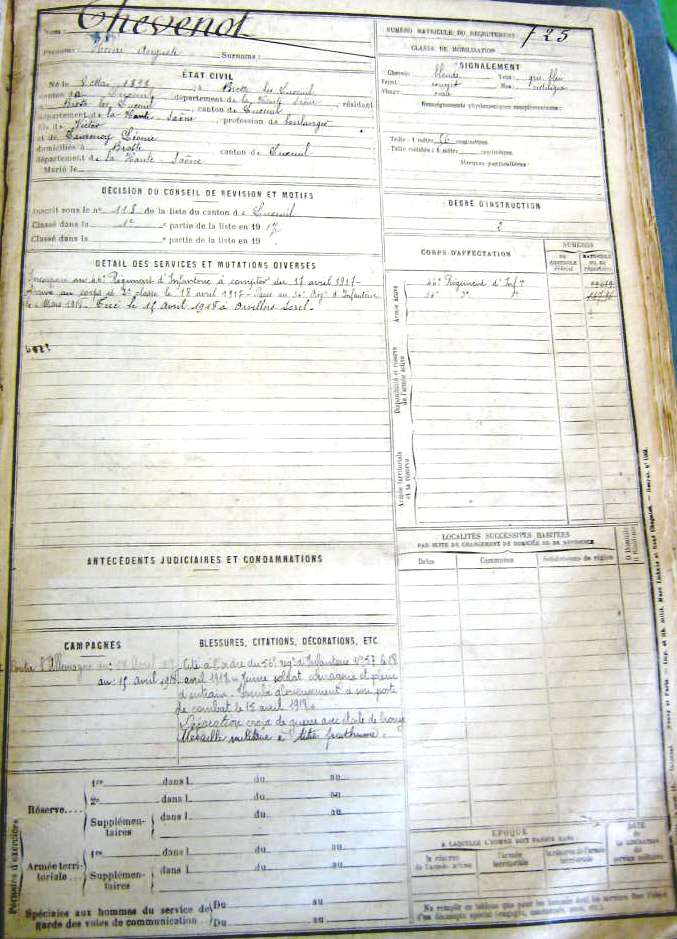 Nom : Thevenot
Prénoms : Auguste Surnoms :
NUMÉRO MATRICULE DU RECRUTEMENT : 725
CLASSE DE MOBILISATION
ÉTAT CIVIL
Né le 8 Mai 1898, à Brotte les Luxeuil
canton de Luxeuil, département de la Haute Saône, résidant
Brotte les Luxeuil, canton de Luxeuil
département de la Haute-Saône, profession de boulanger
fils de Victor
et de Léonie
domiciliés à Brotte canton de Luxeuil
département de la Haute-Saône
Marié le
SIGNALEMENT
Cheveux blonds Yeux gris bleu
Front Nez
Visage ovale
Renseignements physionomiques complémentaires :
Taille : 1 mètre 60 centimètres
Taille rectifiée : 1 mètre centimètres
Marques particulières :
DÉCISION DU CONSEIL DE RÉVISION ET MOTIFS
Inscrit sous le n° 118 de la liste du canton de Luxeuil
Classé dans la 1e partie de la liste en 1917
Classé dans la e partie de la liste en 19
DEGRÉ D'INSTRUCTION
3
DÉTAIL DES SERVICES ET MUTATIONS DIVERSES
Incorporé au 46e Régiment d'Infanterie à compter du 17 avril 1917.
Arrivé au corps et 2e classe le 18 avril 1917. Passé au Régt d'Infanterie
Mars 1918. Tué le 15 avril 1918 à Orvillers Sorel.
CORPS D'AFFECTATION
NUMÉROS
DU CONTRÔLE SPÉCIAL
MATRICULE OU AU RÉPERTOIRE
Armée active
46e Régiment d'Inft
Disponibilité et réserve de l'armée active
Armée territoriale et sa réserve
LOCALITÉS SUCCESSIVES HABITÉES
PAR SUITE DE CHANGEMENT DE DOMICILE OU DE RÉSIDENCE
Dates
Communes
Subdivisions de région
D Domicile
R Résidence
ANTÉCÉDENTS JUDICIAIRES ET CONDAMNATIONS
CAMPAGNES
Contre l'Allemagne du avril
au 15 avril 1918.
BLESSURES, CITATIONS, DÉCORATIONS, ETC.
Cité à l'ordre du 56e régt d'Infanterie N° 57 le 18
avril 1918. Jeune soldat courageux et plein
d'entrain. Tombé glorieusement à son poste
de combat le 15 avril 1918.
Décoration croix de guerre avec étoile de bronze
Médaille militaire à titre posthume.
Périodes d'exercices
Réserve
1re dans l du au
2e dans l du au
Supplémentaires dans l du au
Armée territoriale
1re dans l du au
Supplémentaires dans l du au
Spéciales aux hommes du service de garde des voies de communication
Du au
Du au
ÉPOQUE
À LAQUELLE L'HOMME DOIT PASSER DANS :
la réserve de l'armée active
l'armée territoriale
la réserve de l'armée territoriale
DATE de la LIBÉRATION du service militaire